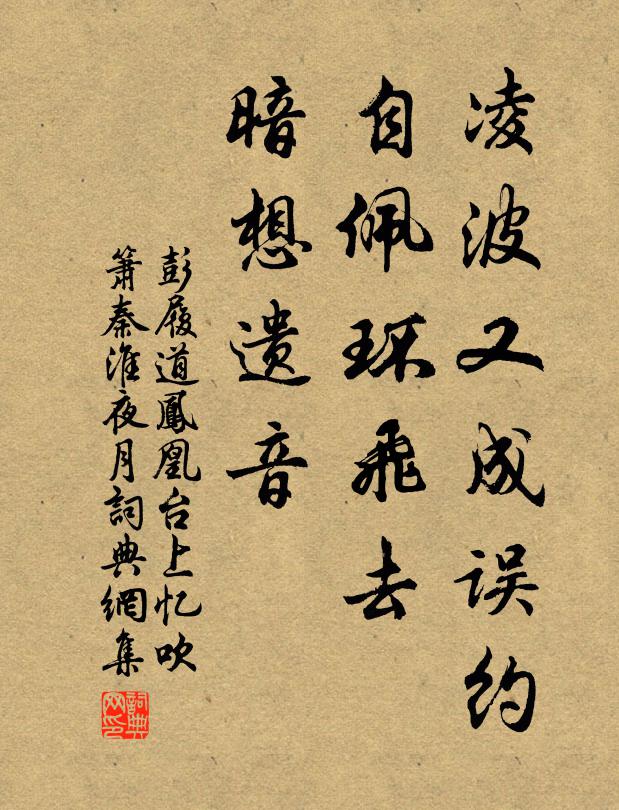 凌波又成误约
自佩环飞去
暗想遗音
彭履道鳳凰台上忆吹
箫秦淮夜月詞典網集
詞典
网印